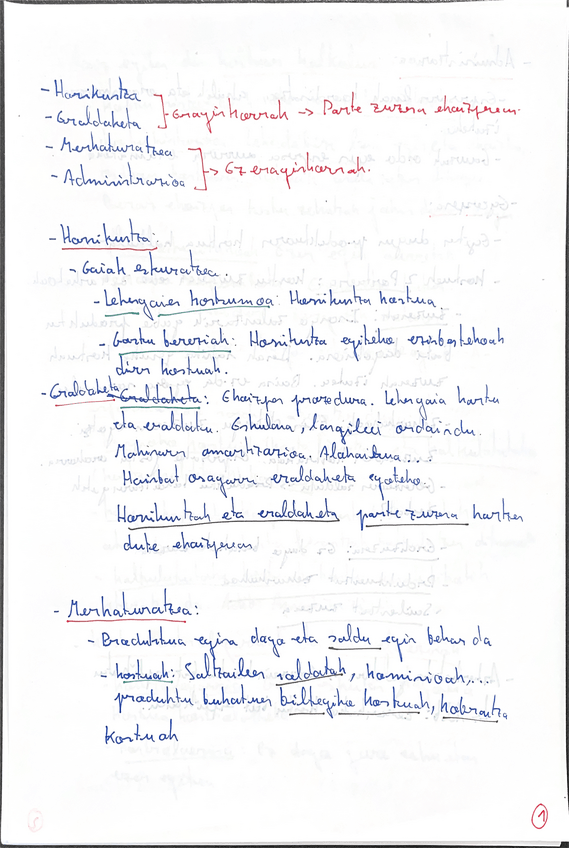 - Hornikuntza
- Eraldaketa
] - Eraginkorrak -> Parte zuzena ekoizpenean.
- Merkaturatzea
- Administrazioa
] -> Ez eraginkorrak.
- Hornikuntza:
- Gaiak eskuratzea.
- Lehengaien kostuemoa: Hornikuntza kostua.
- Gastu bereziak: Hornikuntza egiteko ezinbestekoak
diren kostuak.
- Eraldaketa - Eraldaketa: Ekoizpen prozedura. Lehengaia hartu
eta eraldatu. Eskulana, langileei ordaindu.
Makinaren amortizazioa. Alokairua...
Hainbat osagarri eraldaketa egiteko.
Hornikuntzak eta eraldaketa parte zuzena hartzen
dute ekoizpenean
- Merkaturatzea:
- Produktua egina dago eta saldu egin behar da
- kostuak: Saltzaileen soldatak, komisioak,...
produktu bukatuen biltegiko kostuak, kobrantza
kostuak
1